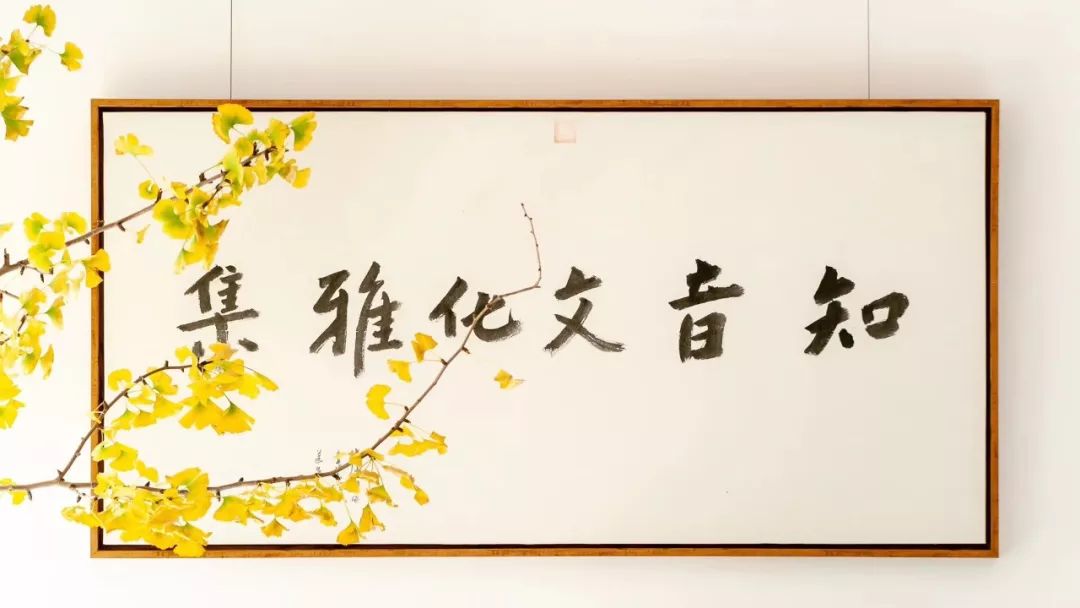 知音文化雅集